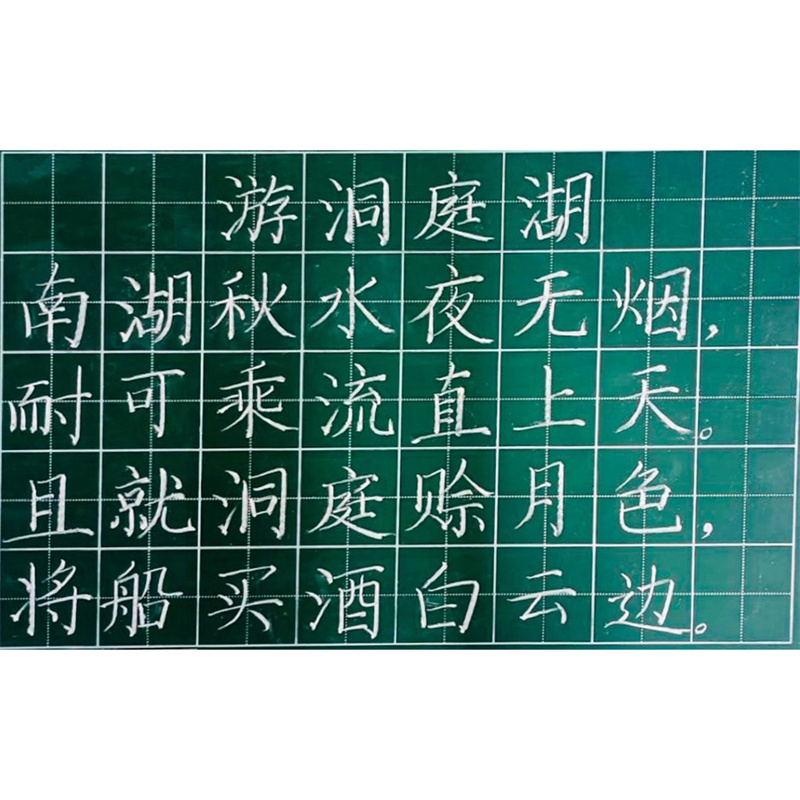 游洞庭湖
南湖秋水夜无烟，
耐可乘流直上天。
且就洞庭赊月色，
将船买酒白云边。